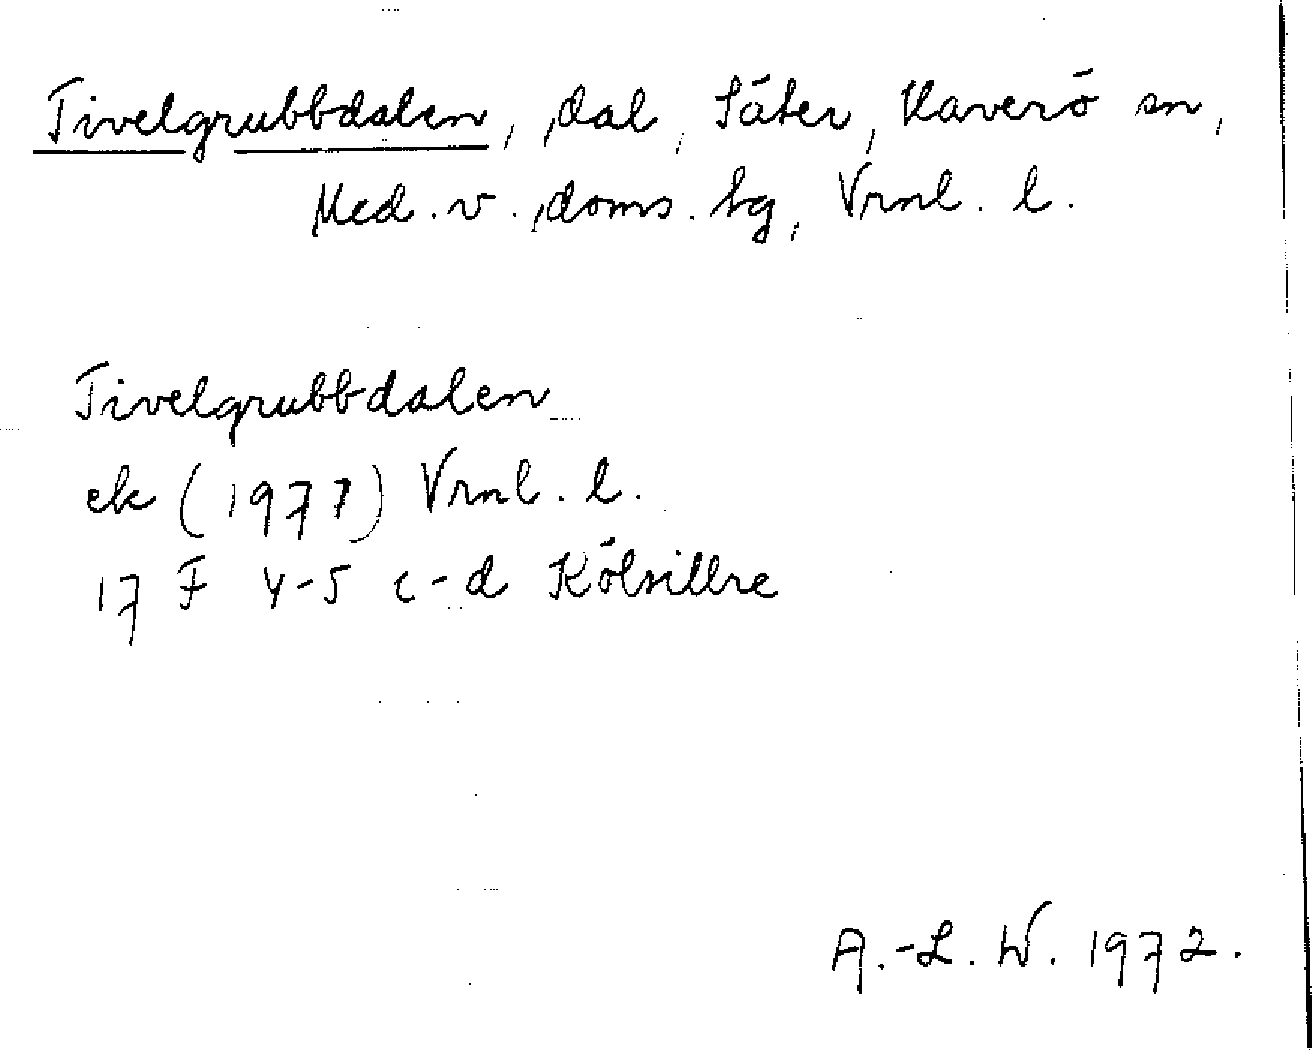 Tivelgrubbdalen, dal, Säter, Haverö sn,
Med. v. doms. hg, Vrnl. l.
Tivelgrubbdalen
ek (1971) Vrnl. l.
17 F 4-5 c-d Kölsillre
A.-L. W. 1972.